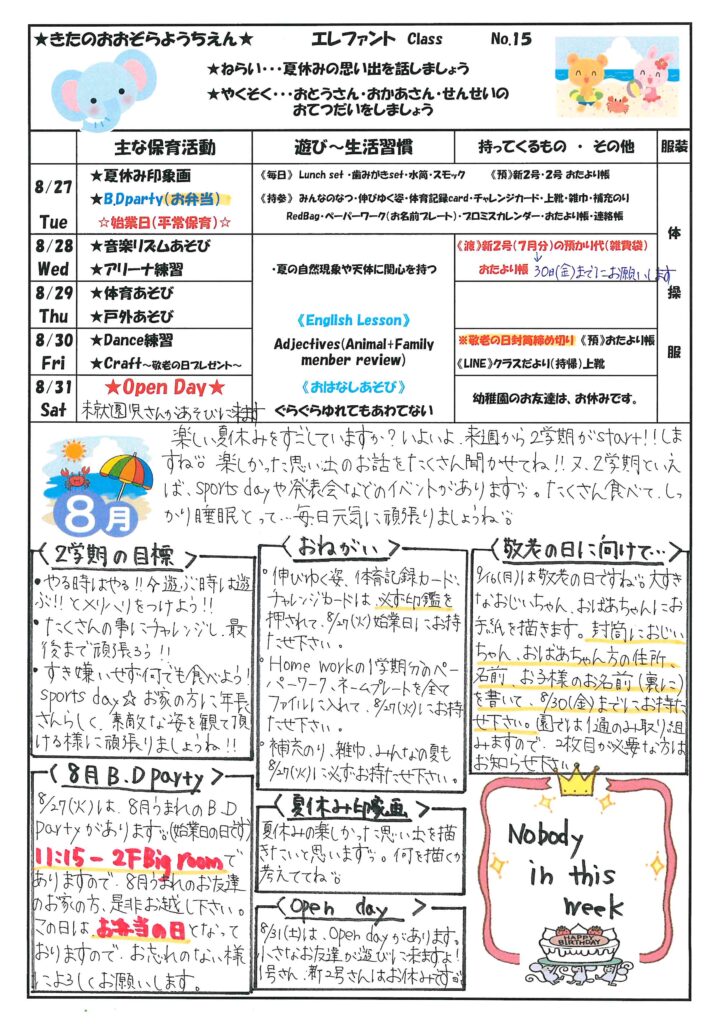 ★きたのおおぞらようちえん★ エレファント Class No.15
★ねらい・・・夏休みの思い出を話しましょう
★やくそく・・・おとうさん・おかあさん・せんせいの
おてつだいをしましょう
主な保育活動 遊び～生活習慣 持ってくるもの ・ その他 服装
8/27 Tue
★夏休み印象画
★B.Dparty(お弁当)
☆始業日(平常保育)☆
《毎日》 Lunch set ・歯みがきset・水筒・スモック 《預》新2号・2号 おたより帳
《持参》 みんなのなつ・伸びゆく姿・体育記録card・チャレンジカード・上靴・雑巾・補充のり
RedBag・ペーパーワーク(お名前プレート)・プロミスカレンダー・おたより帳・連絡帳
8/28 Wed
★音楽リズムあそび
★アリーナ練習
・夏の自然現象や天体に関心を持つ
《渡》新2号(7月分)の預かり代(雑費袋)
おたより帳 30日(金)までにお願いします
8/29 Thu
★体育あそび
★戸外あそび
《English Lesson》
Adjectives(Animal+Family
menber review)
8/30 Fri
★Dance練習
★Craft～敬老の日プレゼント～
※敬老の日封筒締め切り 《預》おたより帳
《LINE》クラスだより(持帰)上靴
8/31 Sat
★Open Day★
未就園児さんがあそびに来ます
《おはなしあそび》
ぐらぐらゆれてもあわてない
幼稚園のお友達は、お休みです。
体操服
8月
楽しい夏休みをすごしていますか?いよいよ、来週から2学期がstart!!しま
すね。楽しかった思い出のお話をたくさん聞かせてね!!又、2学期といえ
ば、sports dayや発表会などのイベントがあります。たくさん食べて、しっ
かり睡眠とって…毎日元気に頑張りましょうね。
〈2学期の目標〉
・やる時はやる!!今遊ぶ時は遊
ぶ!!とメリハリをつけよう!!
・たくさんの事にチャレンジし、最
後まで頑張ろう!!
・すき嫌いせず何でも食べよう!
sports day☆お家の方に年長
さんらしく、素敵な姿を観て頂
ける様に頑張りましょうね!!
〈おねがい〉
・伸びゆく姿、体育記録カード、
チャレンジカードは、必ず印鑑を
押されて、8/27(火)始業日にお持
たせ下さい。
・Home workの1学期分のペー
パーワーク、ネームプレートを全て
ファイルに入れて、8/27(火)にお持
たせ下さい。
・補充のり、雑巾、みんなの夏も
8/27(火)に必ずお持たせ下さい。
〈敬老の日に向けて…〉
9/16(月)は敬老の日ですね。大すき
なおじいちゃん、おばあちゃんにお
手紙を描きます。封筒におじい
ちゃん、おばあちゃん方の住所、
名前、お子様のお名前(裏に)
を書いて、8/30(金)までにお持た
せ下さい。園では1通のみ取り組
みますので、2枚目が必要な方は
お知らせ下さい。
〈8月B.D party〉
8/27(火)は、8月うまれのB.D
partyがあります。(始業日の日です)
11:15-2F Big roomで
ありますので、8月うまれのお友達
のお家の方、是非お越し下さい。
この日は、お弁当の日となって
おりますので、お忘れのない様
によろしくお願いします。
〈夏休み印象画〉
夏休みの楽しかった思い出を描
きたいと思います。何を描くか
考えててね。
〈Open day〉
8/31(土)は、Open dayがあります。
小さなお友達が遊びに来ますよ!
1号さん、新2号さんはお休みです
Nobody
in this
week
HAPPY
BIRTHDAY